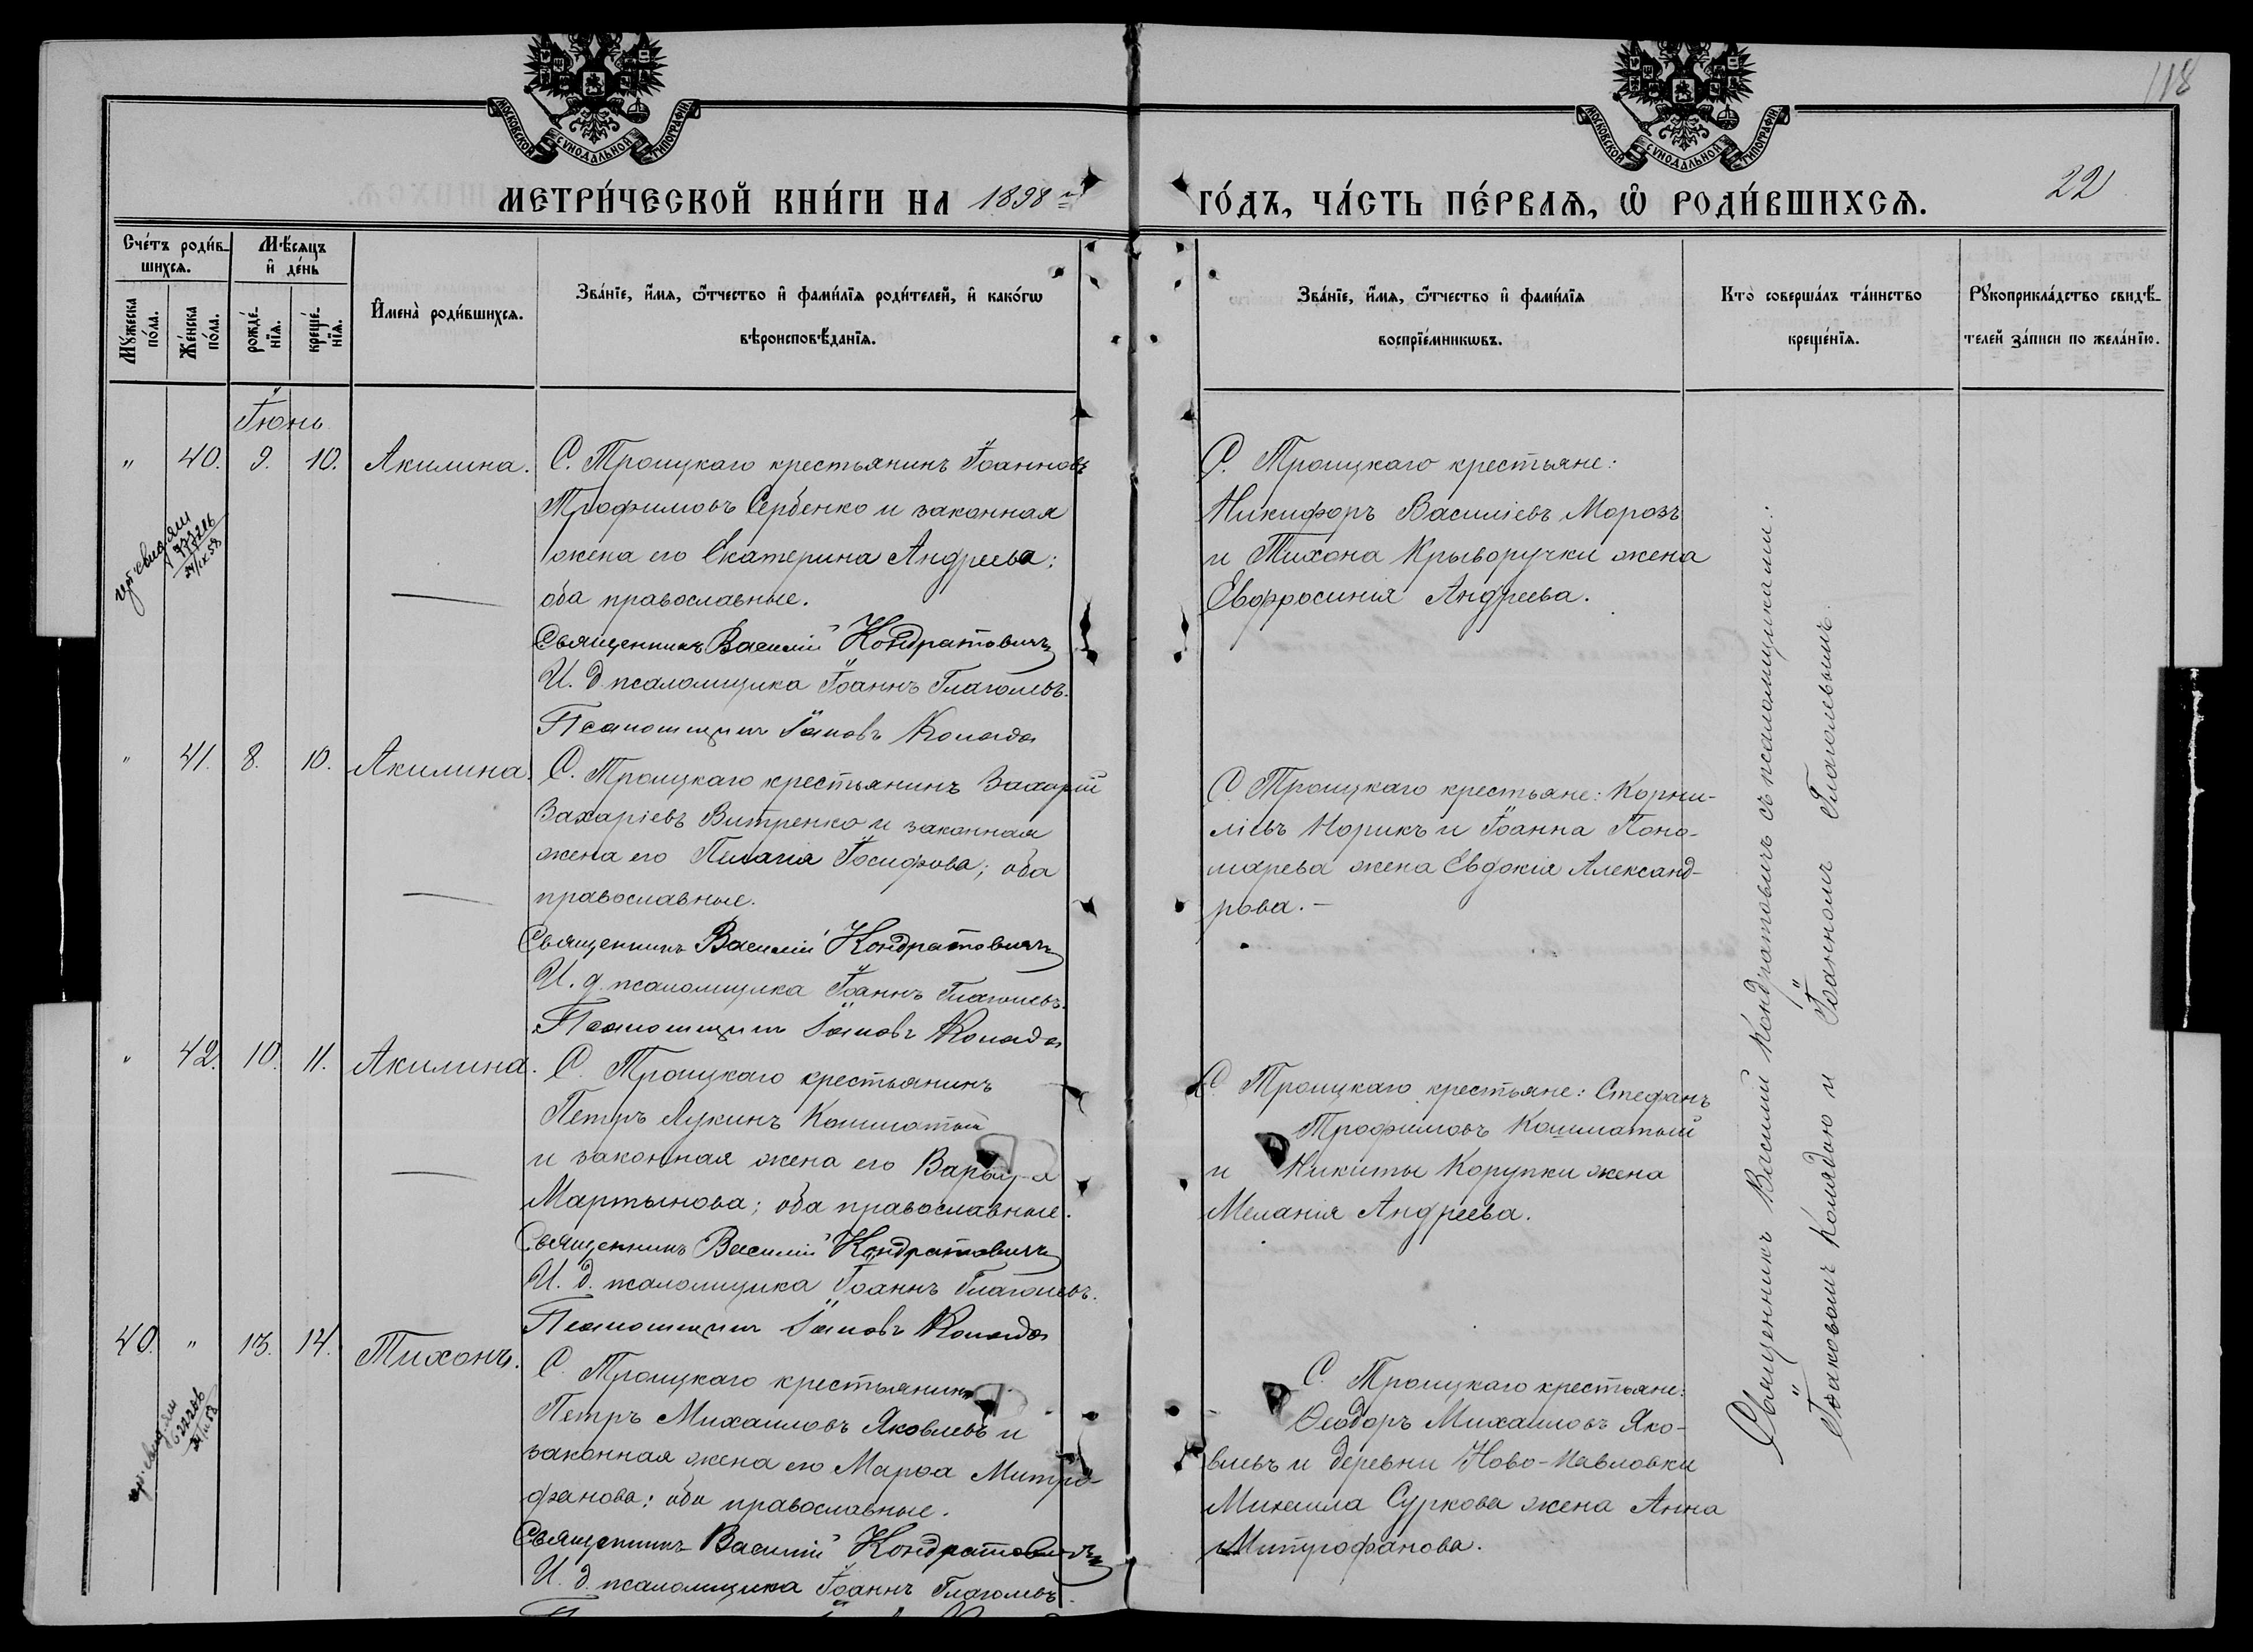 МОСКОВСКОЙ СѴНОДАЛЬНОЙ ТИПОГРАФІИ
МОСКОВСКОЙ СѴНОДАЛЬНОЙ ТИПОГРАФІИ
118
МЕТРИ́ЧЕСКОЙ КНИ́ГИ НА 1898 й
ГО́ДЪ, ЧА́СТЬ ПЕ́РВАѦ, Ѡ҆ РОДИ́ВШИХСѦ.
22
Счетъ роди́в-
шихсѧ.
Мѣ́сѧцъ
и҆ де́нь
Мꙋжеска
по́ла.
Же́нска
по́ла.
рожде́-
нїѧ.
креще́-
нїѧ.
И҆мена̀ роди́вшихсѧ.
Зва́нїе, и҆́мѧ, ѻ҆́тчество и҆ фами́лїѧ роди́телей, и҆ како́гѡ
вѣроисповѣ́данїѧ.
Зва́нїе, и҆́мѧ, ѻ҆́тчество и҆ фами́лїѧ
воспрїе́мникѡвъ.
Кто̀ соверша́лъ та́инство
креще́нїѧ.
Рꙋкоприкла́дство свидѣ́-
телей за́писи по жела́нїю.
Іюнь
" 40. 9. 10. Акилина.
С. Троицкаго крестьянинъ Іоанновъ
Трофимовъ Сербенко и законная
жена его Екатерина Андреева;
оба православные.
Священникъ Василій Кондратовичъ
И. д. псаломщика Іоаннъ Глаголевъ.
Псаломщикъ Іаковъ Коляда
С. Троицкаго крестьяне:
Никифоръ Василіевъ Морозъ
и Тихона Крыворучки жена
Евфросинія Андреева.
24/IX 58
" 41. 8. 10. Акилина.
С. Троицкаго крестьянинъ Захарій
Захаріевъ Витренко и законная
жена его Пелагія Іосифова; оба
православные.
Священникъ Василій Кондратовичъ
И. д. псаломщика Іоаннъ Глаголевъ.
Псаломщикъ Іаковъ Коляда
С. Троицкаго крестьяне: Корни-
ліевъ Норикъ и Іоанна Поно-
марева жена Евдокія Александ-
рова. –
" 42. 10. 11. Акилина.
С. Троицкаго крестьянинъ
Петръ Лукинъ Кошматый
и законная жена его
Мартынова; оба православные.
Священникъ Василій Кондратовичъ
И. д. псаломщика Іоаннъ Глаголевъ.
Псаломщикъ Іаковъ Коляда
С. Троицкаго крестьяне: Стефанъ
Трофимовъ Кошматый
и Никиты Корупки жена
Меланія Андреева.
40. " 13. 14. Тихонъ.
С. Троицкаго крестьянинъ
Петръ Михаиловъ Яковлевъ и
законная жена его Марѳа Митро-
фанова; оба православные.
Священникъ Василій Кондратовичъ
И. д. псаломщика Іоаннъ Глаголевъ.
С. Троицкаго крестьяне:
Ѳеодоръ Михаиловъ Яко-
влевъ и деревни Ново-Павловки
Михаила Суркова жена Анна
Митрофанова.
Священникъ Василій Кондратовичъ съ псаломщиками:
Іаковомъ Колядою и Іоанномъ Глаголевымъ.